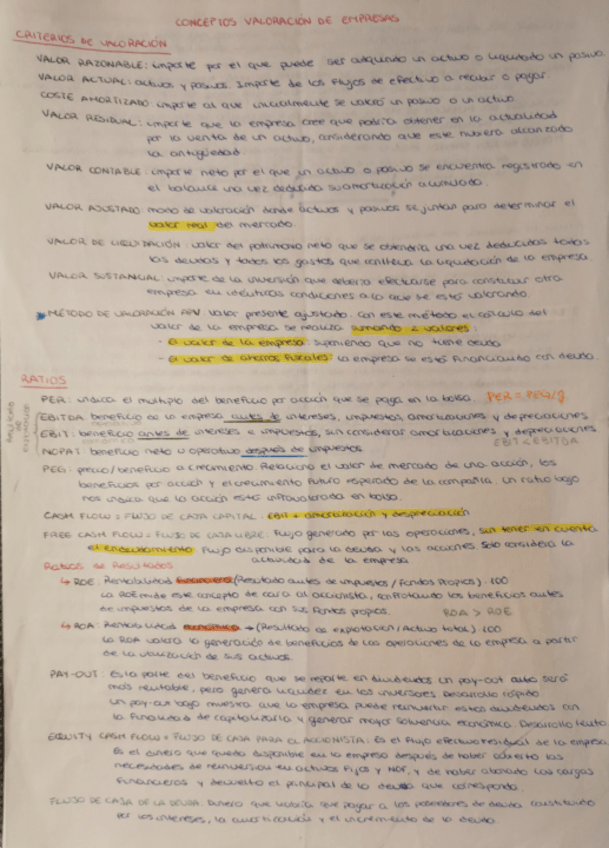 CONCEPTOS VALORACIÓN DE EMPRESAS
CRITERIOS DE VALORACIÓN
VALOR RAZONABLE: importe por el que puede ser adquirido un activo o liquidado un pasivo.
VALOR ACTUAL: activos y pasivos. Importe de los flujos de efectivo a recibir o pagar.
COSTE AMORTIZADO: importe al que inicialmente se valoró un pasivo o un activo.
VALOR RESIDUAL: importe que la empresa cree que podría obtener en la actualidad
por la venta de un activo, considerando que este hubiera alcanzado
la antigüedad.
VALOR CONTABLE: importe neto por el que un activo o pasivo se encuentra registrado en
el balance una vez deducida su amortización acumulada.
VALOR AJUSTADO: modo de valoración donde activos y pasivos se juntan para determinar el
valor real de mercado.
VALOR DE LIQUIDACIÓN: valor del patrimonio neto que se obtendría una vez deducidas todas
las deudas y todos los gastos que conlleva la liquidación de la empresa.
VALOR SUSTANCIAL: importe de la inversión que debería efectuarse para constituir otra
empresa en idénticas condiciones a la que se está valorando.
MÉTODO DE VALORACIÓN APV: valor presente ajustado. Con este método el cálculo del
valor de la empresa se realiza sumando 2 valores:
- El valor de la empresa: suponiendo que no tiene deuda
- El valor de ahorros fiscales: la empresa se está financiando con deuda.
RATIOS
PER: indica el múltiplo del beneficio por acción que se paga en la bolsa. PER =
EBITDA: beneficio de la empresa antes de intereses, impuestos, amortizaciones y depreciaciones
EBIT: beneficio antes de intereses e impuestos, sin considerar amortizaciones y depreciaciones
EBIT < EBITDA
NOPAT: beneficio neto u operativo después de impuestos
PEG: precio/beneficio a crecimiento. Relaciona el valor de mercado de una acción, los
beneficios por acción y el crecimiento futuro esperado de la compañía. Un ratio bajo
nos indica que la acción está infravalorada en bolsa.
CASH FLOW = FLUJO DE CAJA CAPITAL: EBIT + amortización y depreciación
FREE CASH FLOW = FLUJO DE CAJA LIBRE: Flujo generado por las operaciones, sin tener en cuenta
el endeudamiento. Flujo disponible para la deuda y las acciones. Solo considera la
actividad de la empresa.
Ratios de Resultados
↳ ROE: Rentabilidad financiera (Resultado antes de impuestos / Fondos Propios) · 100
La ROE mide este concepto de cara al accionista, confrontando los beneficios antes
de impuestos de la empresa con sus fondos propios. ROA > ROE
↳ ROA: Rentabilidad económica → (Resultado de explotación / Activo total) · 100
La ROA valora la generación de beneficios de las operaciones de la empresa a partir
de la utilización de sus activos.
PAY-OUT: Es la parte del beneficio que se reparte en dividendos. Un pay-out alto será
más rentable, pero genera liquidez en los inversores. Desarrollo rápido.
Un pay-out bajo muestra que la empresa puede reinvertir estos dividendos con
la finalidad de capitalizarla y generar mayor solvencia económica. Desarrollo lento.
EQUITY CASH FLOW = FLUJO DE CASA PARA EL ACCIONISTA: Es el flujo efectivo residual de la empresa.
Es el dinero que queda disponible en la empresa después de haber cubierto las
necesidades de reinversión en activos fijos y NOF, y de haber abonado las cargas
financieras y devuelto el principal de la deuda que corresponda.
FLUJO DE CASA DE LA DEUDA: Dinero que habría que pagar a los poseedores de deuda constituido
por los intereses, la amortización y el incremento de la deuda.